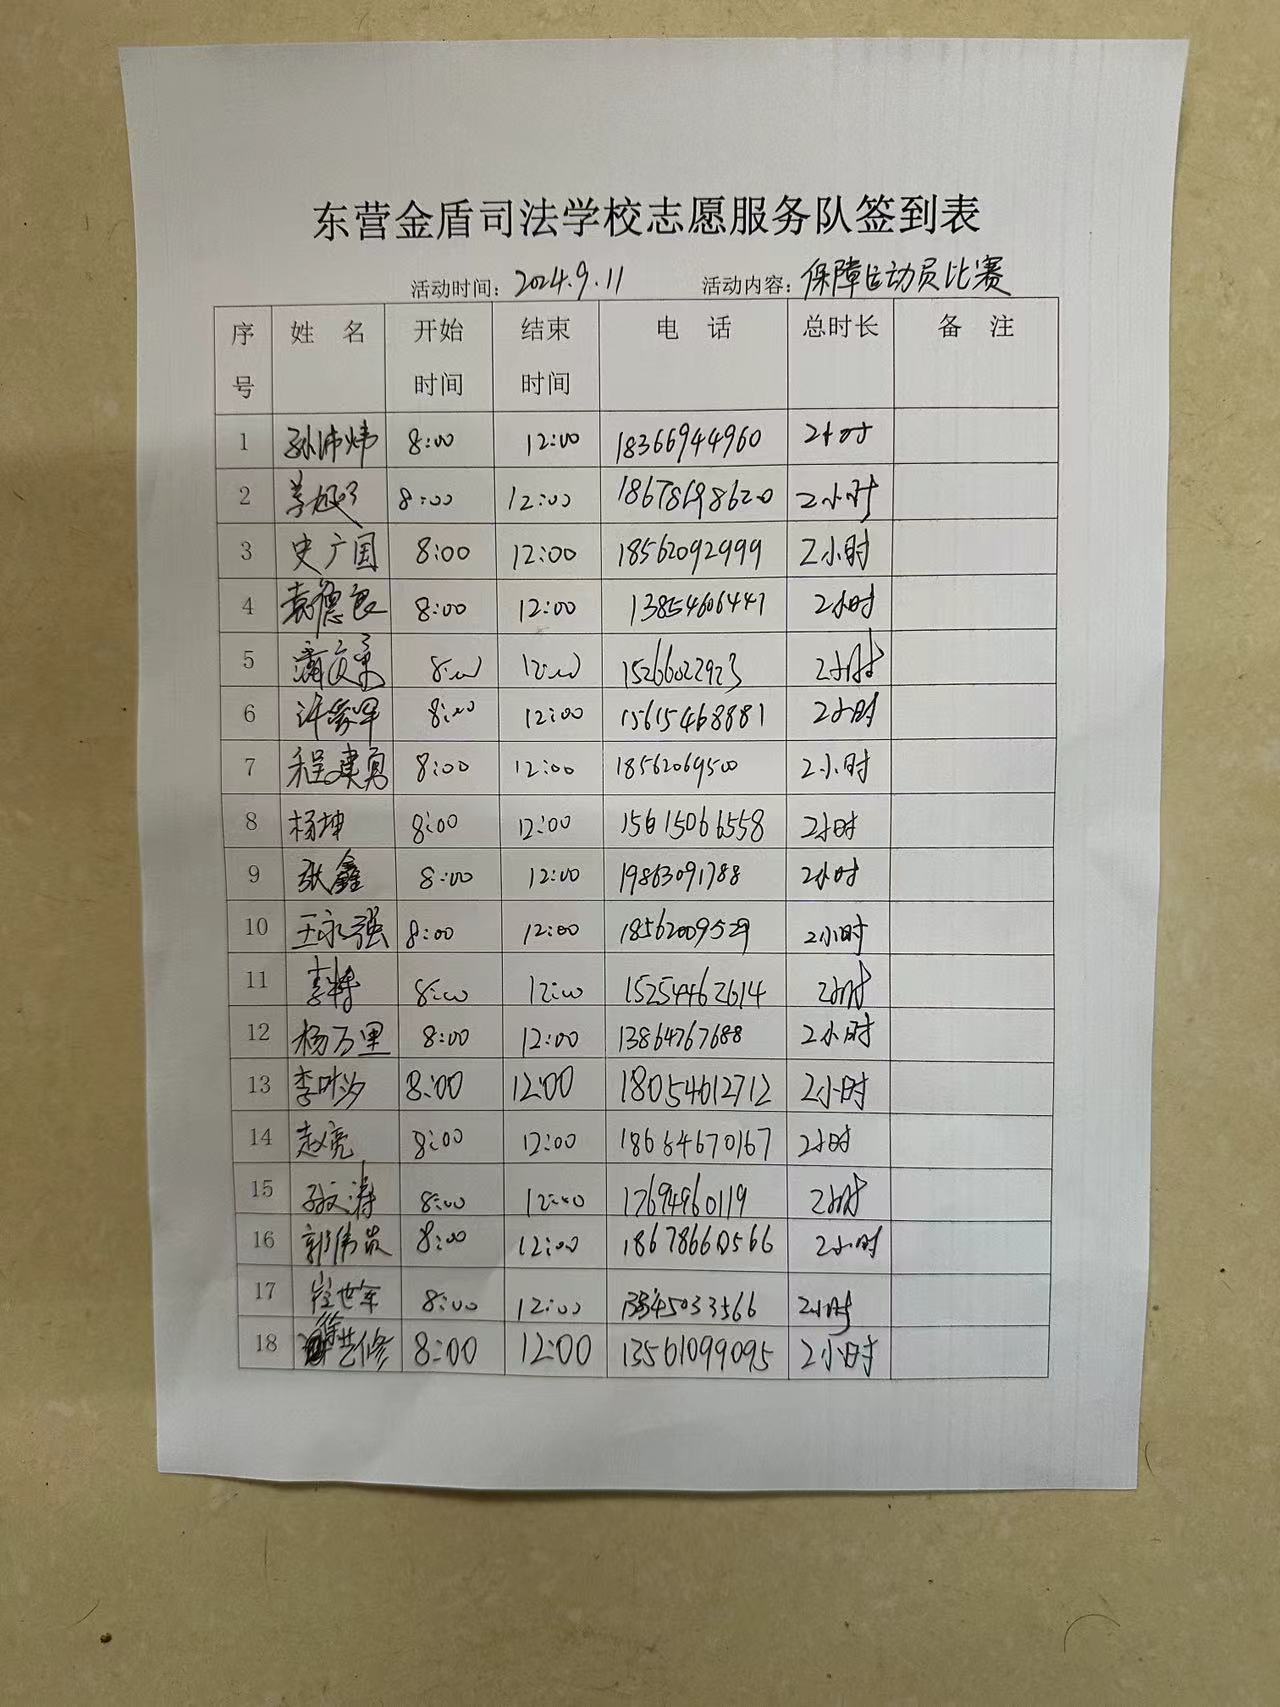 东营金盾司法学校志愿服务队签到表
活动时间：2024.9.11 活动内容：保障运动员比赛
序号 姓 名 开始时间 结束时间 电 话 总时长 备 注
1 孙沛炜 8:00 12:00 18366944960 2小时
2 8:00 12:00 18678698620 2小时
3 史广国 8:00 12:00 18562092999 2小时
4 袁德良 8:00 12:00 13854606441 2小时
5 8:00 12:00 15266022923 2小时
6 8:00 12:00 15615468881 2小时
7 程建勇 8:00 12:00 18562069500 2小时
8 杨坤 8:00 12:00 15615066558 2小时
9 张鑫 8:00 12:00 19863091788 2小时
10 王永强 8:00 12:00 18562009529 2小时
11 李特 8:00 12:00 15254462614 2小时
12 杨万里 8:00 12:00 13864767688 2小时
13 李叶汐 8:00 12:00 18054612712 2小时
14 赵亮 8:00 12:00 18664670167 2小时
15 孙文涛 8:00 12:00 17694960119 2小时
16 郭伟贵 8:00 12:00 18678660566 2小时
17 崔世军 8:00 12:00 2小时
18 徐艺修 8:00 12:00 13561099095 2小时